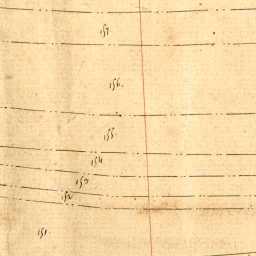 157
156.
155.
154
153
152
151.